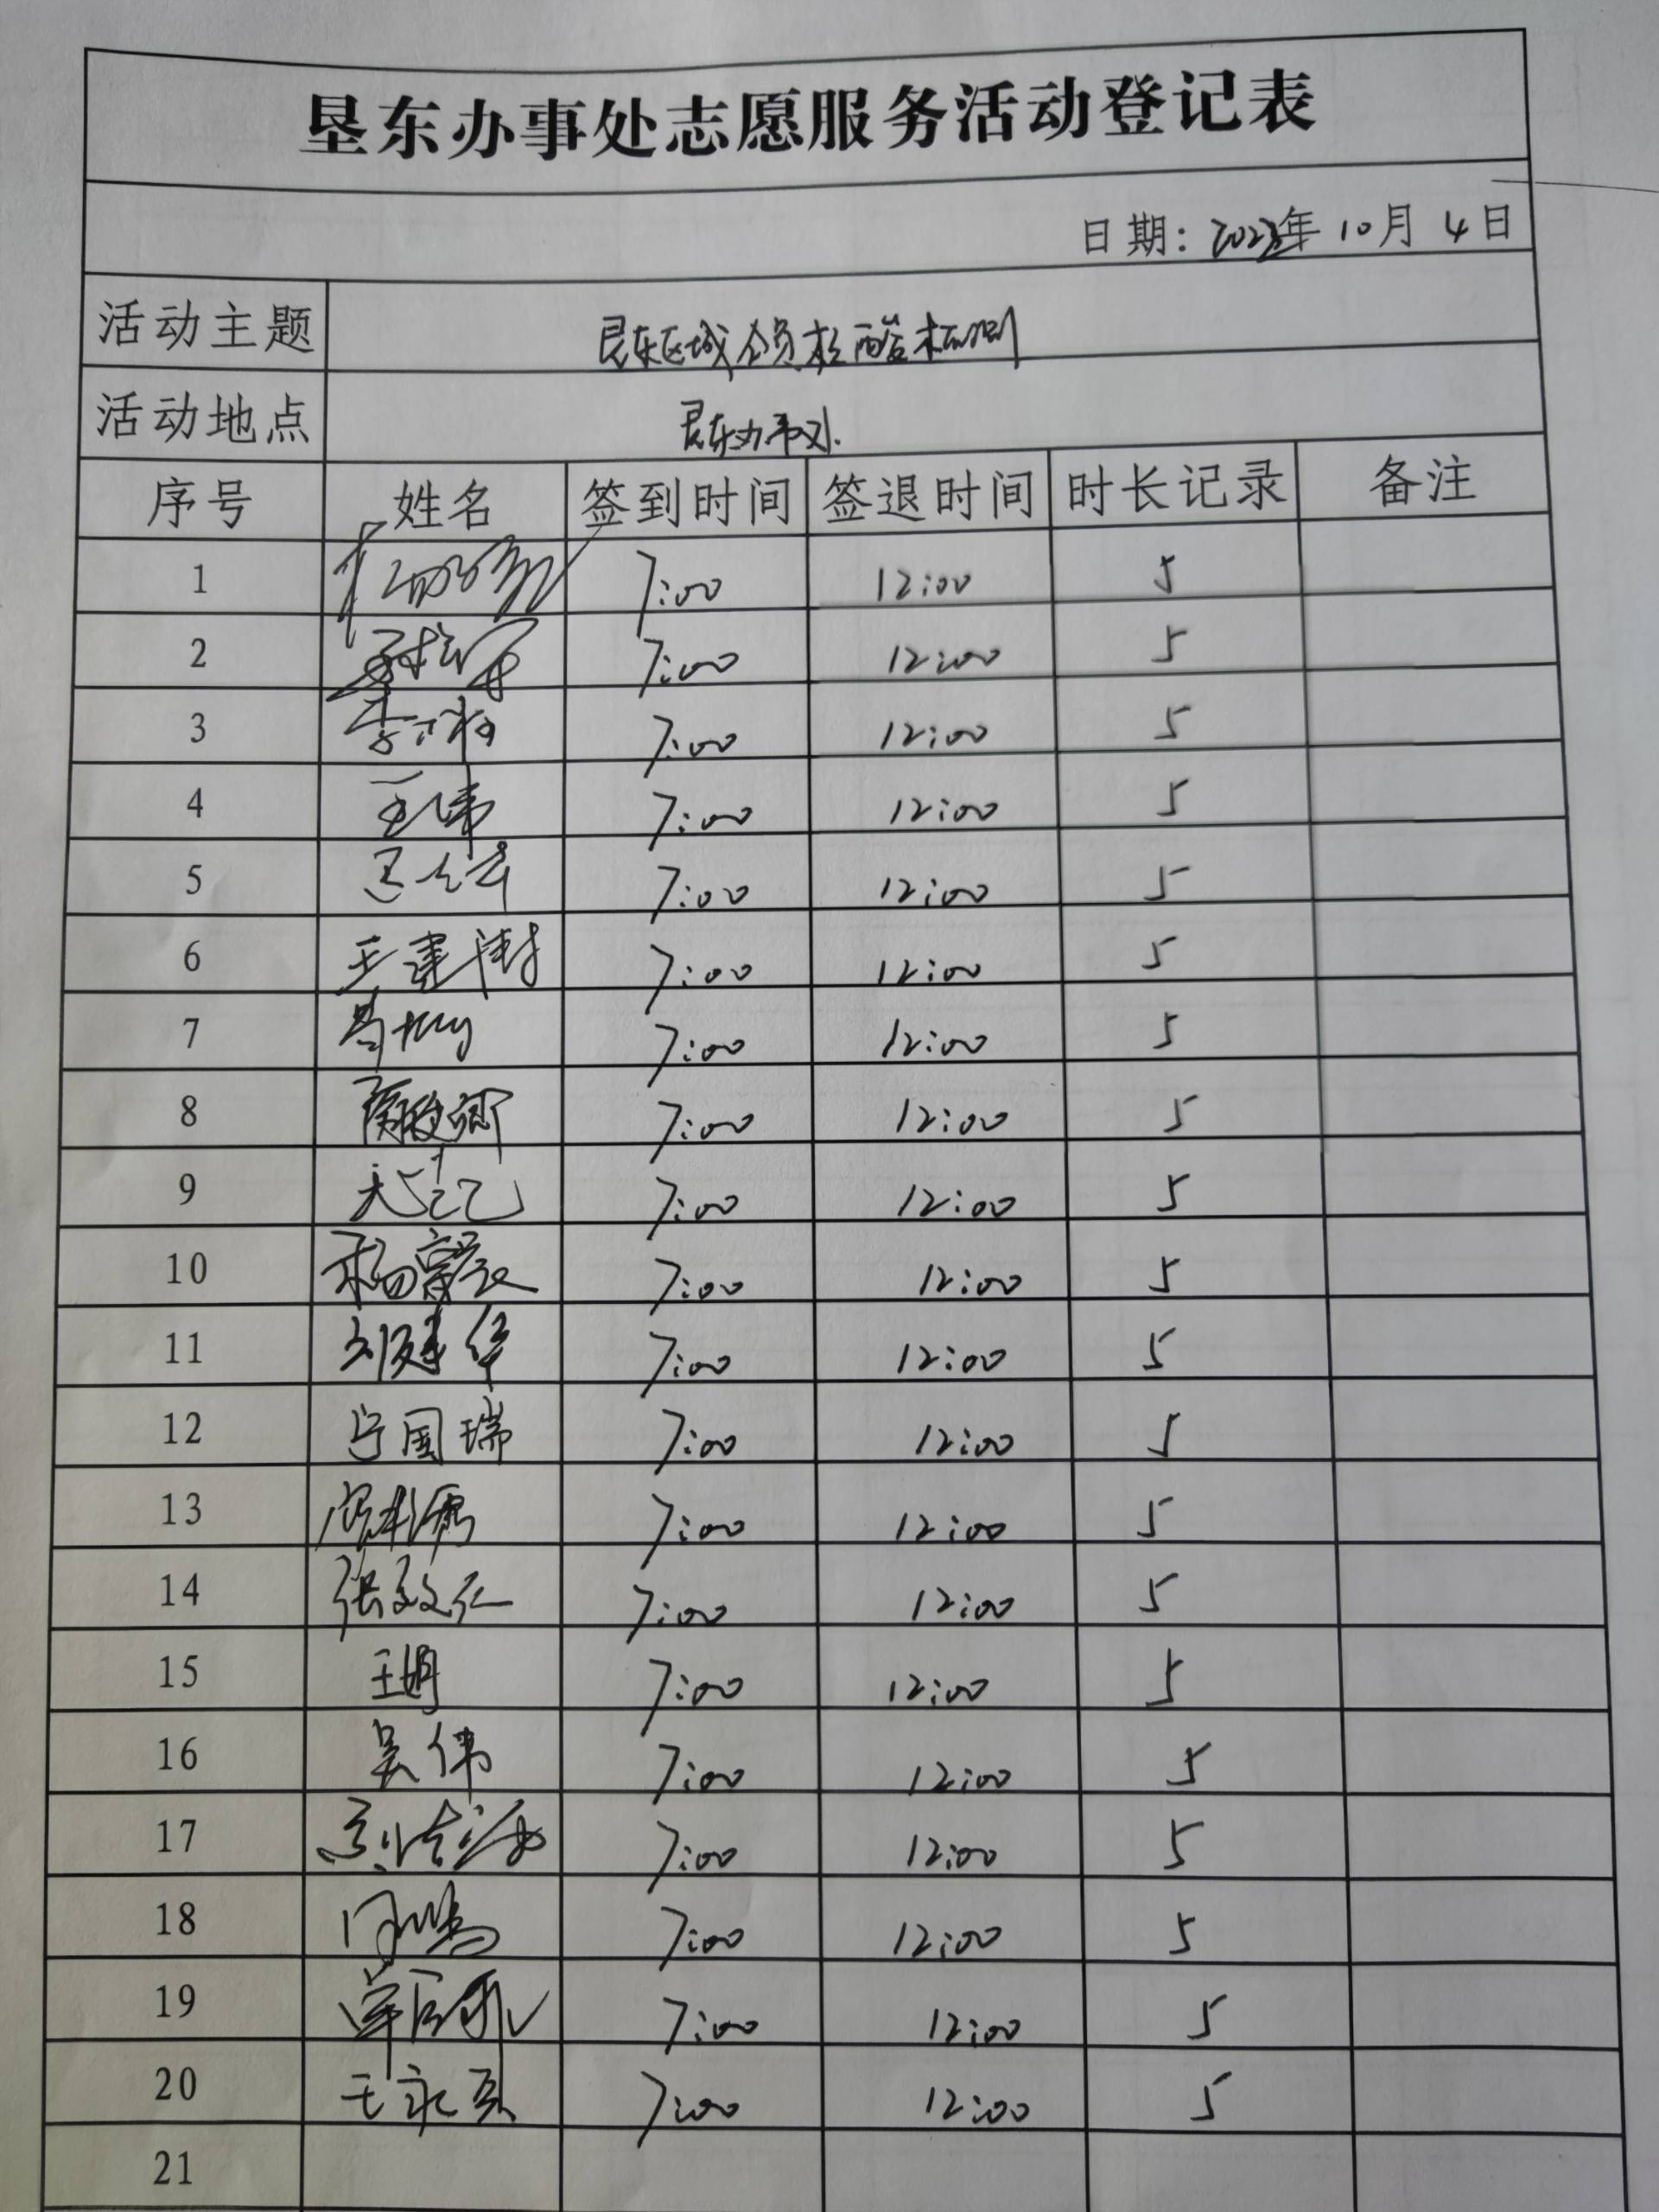 垦东办事处志愿服务活动登记表
日期: 年 10月 4日
活动主题 垦东区域全员核酸检测
活动地点 垦东办事处
序号 姓名 签到时间 签退时间 时长记录 备注
1 7:00 12:00 5
2 7:00 12:00 5
3 7:00 12:00 5
4 王伟 7:00 12:00 5
5 7:00 12:00 5
6 7:00 12:00 5
7 7:00 12:00 5
8 7:00 12:00 5
9 7:00 12:00 5
10 7:00 12:00 5
11 刘建华 7:00 12:00 5
12 宁国瑞 7:00 12:00 5
13 7:00 12:00 5
14 7:00 12:00 5
15 王娟 7:00 12:00 5
16 吴伟 7:00 12:00 5
17 7:00 12:00 5
18 7:00 12:00 5
19 7:00 12:00 5
20 7:00 12:00 5
21